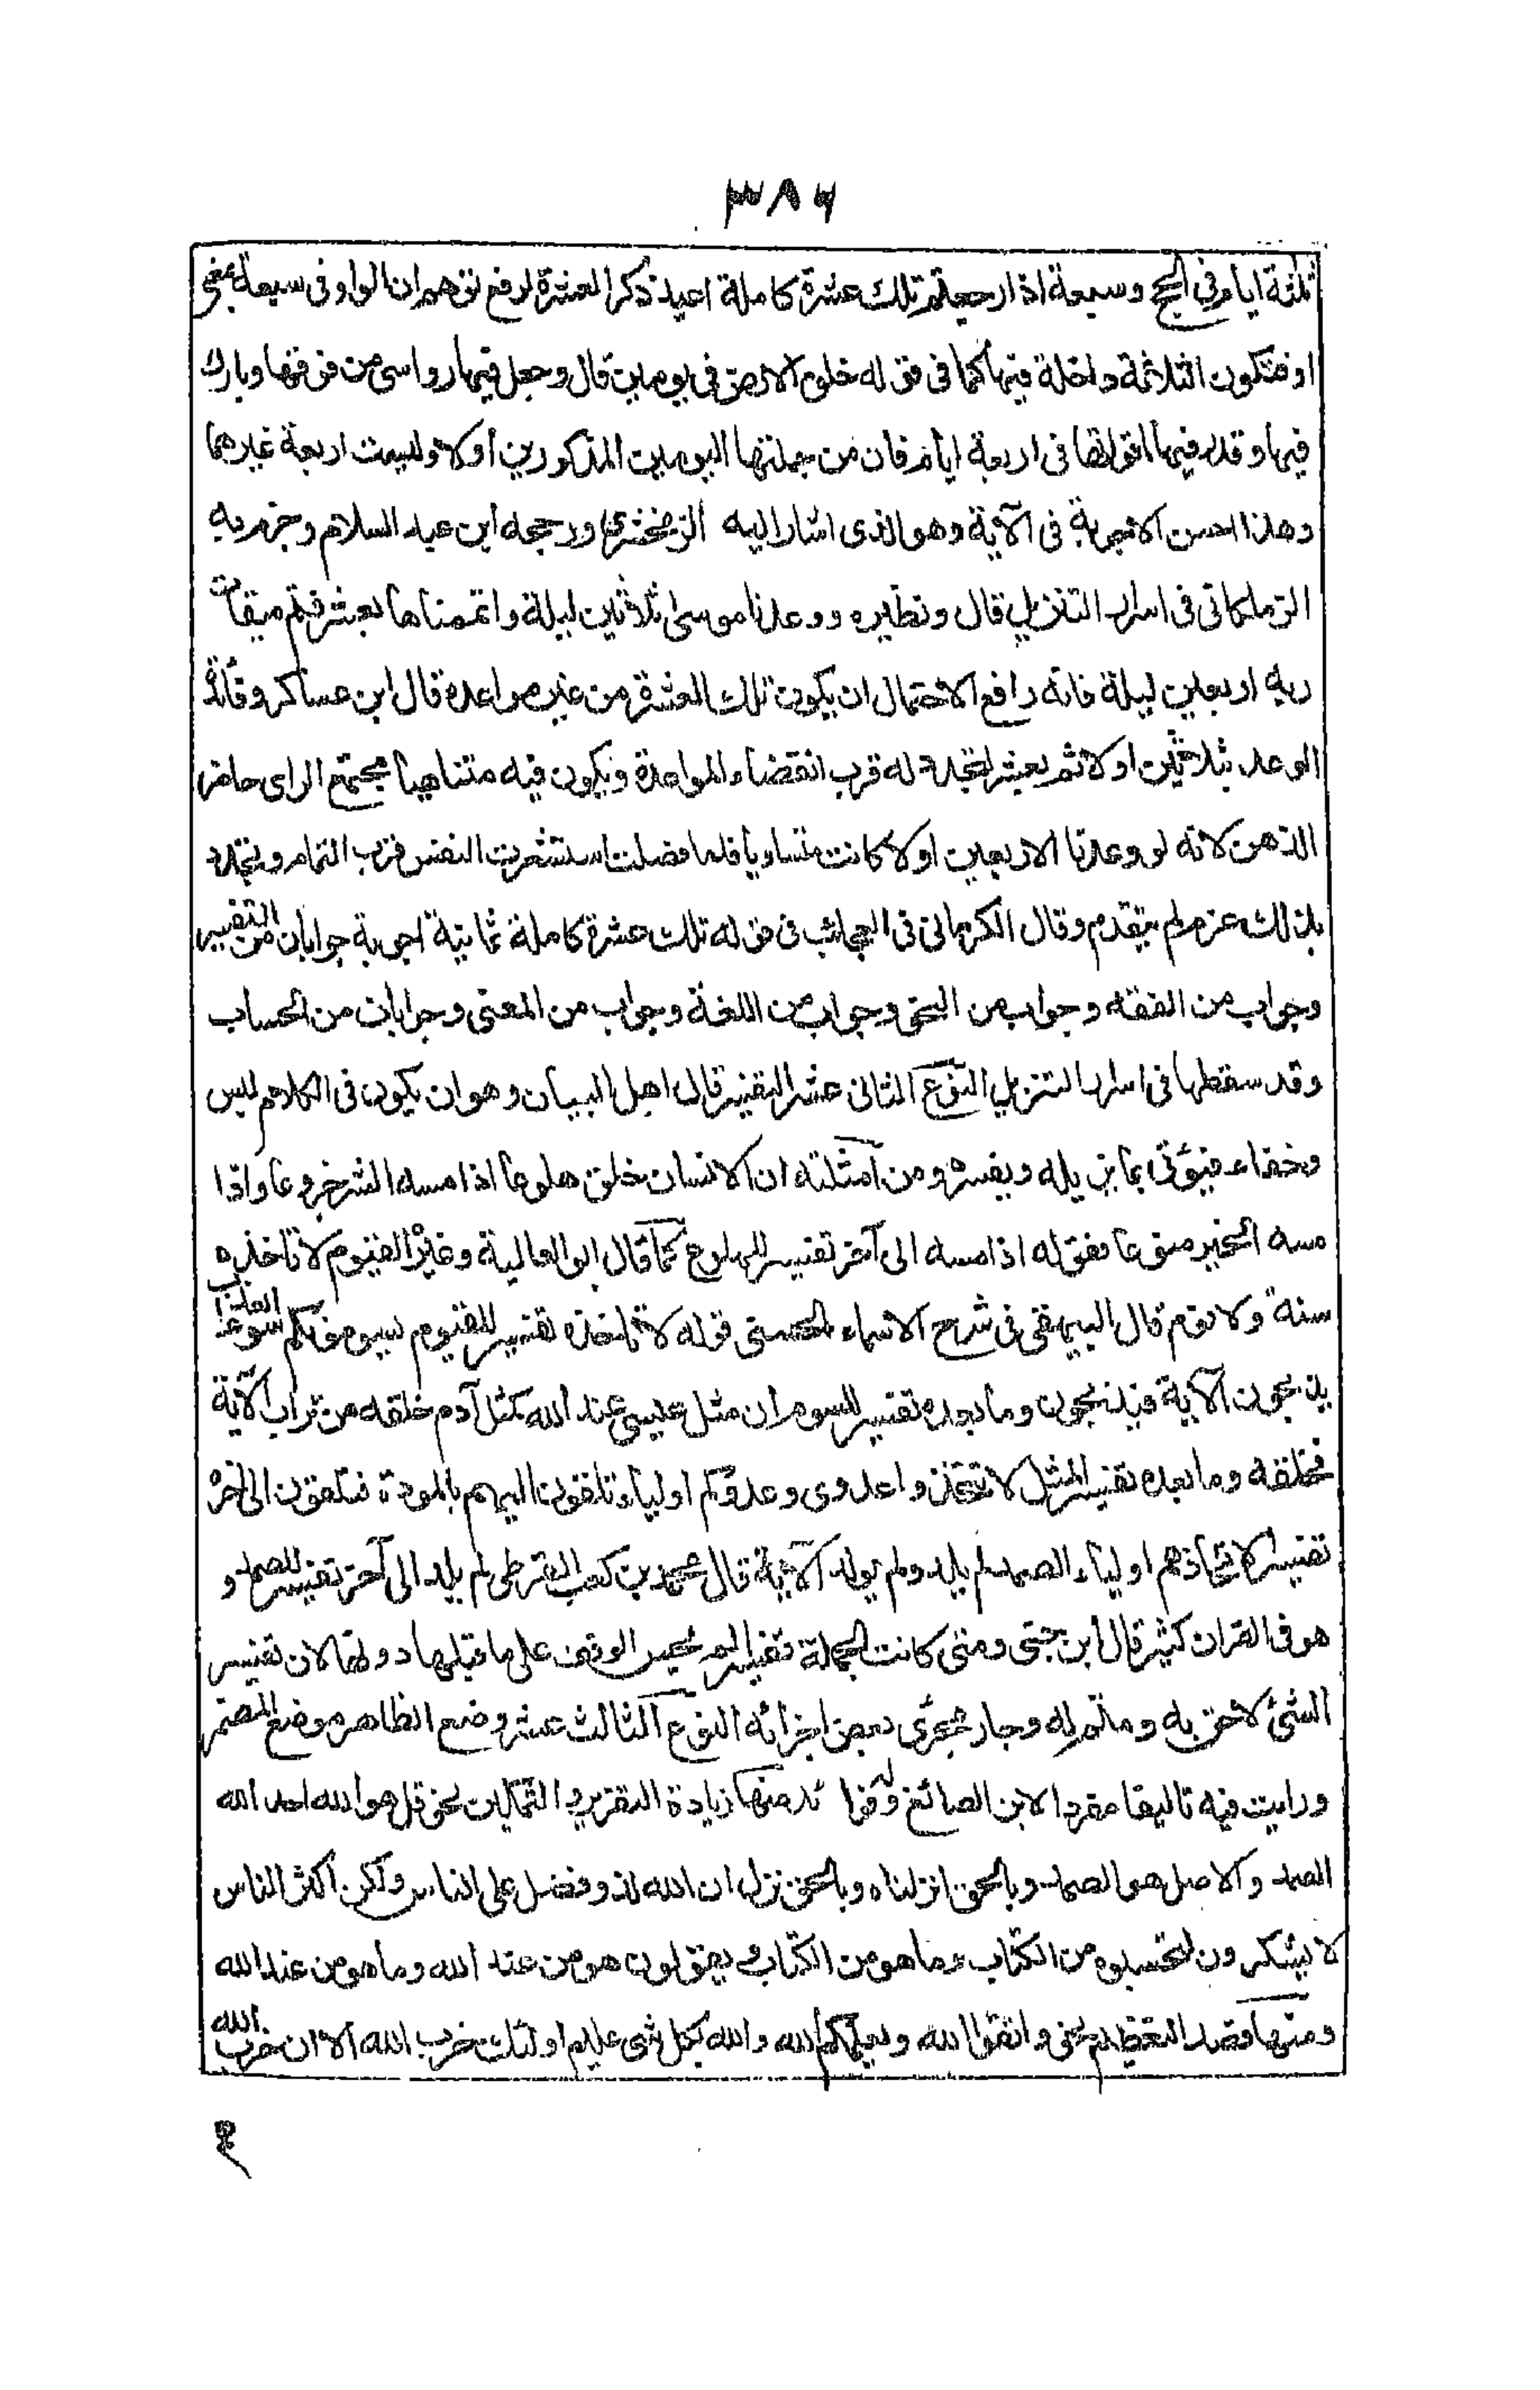 ٣٨٦
ثلثة ايام في الحج وسبعة اذا رجعتم تلك عشرة كاملة اعيد ذكر العشرة لرفع توهم ان الواو في سبعة بمعنى
او فتكون الثلاثة داخلة فيها كما في قوله خلق الارض في يومين قال وجعل فيها رواسى من فوقها وبارك
فيها وقدر فيها اقواتها في اربعة ايام فان من جملتها اليومين المذكورين أولا وليست اربعة غيرهما
وهذا احسن الاجوبة في الآية وهو الذى اشار اليه الزمخشرى ورجحه ابن عبد السلام وجزم به
الزملكانى في اسرار التنزيل قال ونظيره ووعدنا موسى ثلاثين ليلة واتممناها بعشر فتم ميقات
ربه اربعين ليلة فانه رافع الاحتمال ان يكون تلك العشرة من غير مواعده قال ابن عساكر وفائدة
الوعد بثلاثين اولا ثم بعشر لتجدد له قرب انقضاء المواعدة ويكون فيه متناهيا مجتمع الراى حاضر
الذهن لانه لو وعدنا الاربعين اولا كانت متساويا فلما فضلت استشعرت النفس قرب التمام وتجدد
بذلك عزم لم يتقدم وقال الكرمانى في العجائب في قوله تلك عشرة كاملة ثمانية اجوبة جوابان من التفسير
وجواب من الفقه وجواب من النحو وجواب من اللغة وجواب من المعنى وجوابان من الحساب
وقد سقطها في اسرار التنزيل النوع الثانى عشر التفسير قال اهل البيان وهو ان يكون في الكلام لبس
وخفاء فيؤتى بما يزيله ويفسره ومن امثلته ان الانسان خلق هلوعا اذا مسه الشر جزوعا واذا
مسه الخير منوعا فقوله اذا مسه الى آخر تفسير للهلوع كما قال ابو العالية وغيره القيوم لا تاخذه
سنة ولا نوم قال البيهقى في شرح الاسماء الحسنى قوله لا تاخذه تفسير للقيوم يسومونكم سوء العذاب
يذبحون الآية فيذبحون وما بعده تفسير للسوم ان مثل عيسى عند الله كمثل آدم خلقه من تراب الآية
فخلقه وما بعده تفسير للمثل لا تتخذوا عدوى وعدوكم اولياء تلقون اليهم بالمودة فتلقون الى آخره
تفسير لاتخاذهم اولياء الصمد لم يلد ولم يولد الآية قال محمد بن كعب القرظى لم يلد الى آخره تفسير للصمد و
هو في القران كثير قال ابن جنى ومتى كانت الجملة تفسيرا لم يحسن الوقف على ما قبلها دونها لان تفسير
الشئ لاحق به ومتمم له وجار مجرى بعض اجزائه النوع الثالث عشر وضع الظاهر موضع المضمر
ورايت فيه تاليفا مفردا لابن الصائغ وله فوا ئد منها زيادة التقرير والتمكين نحو قل هو الله احد الله
الصمد والاصل هو الصمد وبالحق انزلناه وبالحق نزل ان الله لذو فضل على الناس ولكن اكثر الناس
لا يشكرون لتحسبوه من الكتاب وما هو من الكتاب ويقولون هو من عند الله وما هو من عند الله
ومنها قصد التعظيم نحو واتقوا الله ويعلمكم الله والله بكل شئ عليم اولئك حزب الله الا ان حزب الله